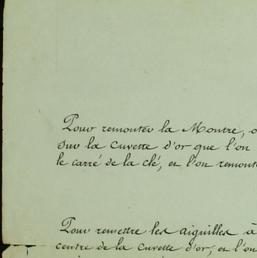 Pour remonter la Montre, o
sur la Cuvette d'or que l'on
le carré de la clé, et l'on remont
Pour remettre les aiguilles à
centre de la Cuvette d'or, et l'on